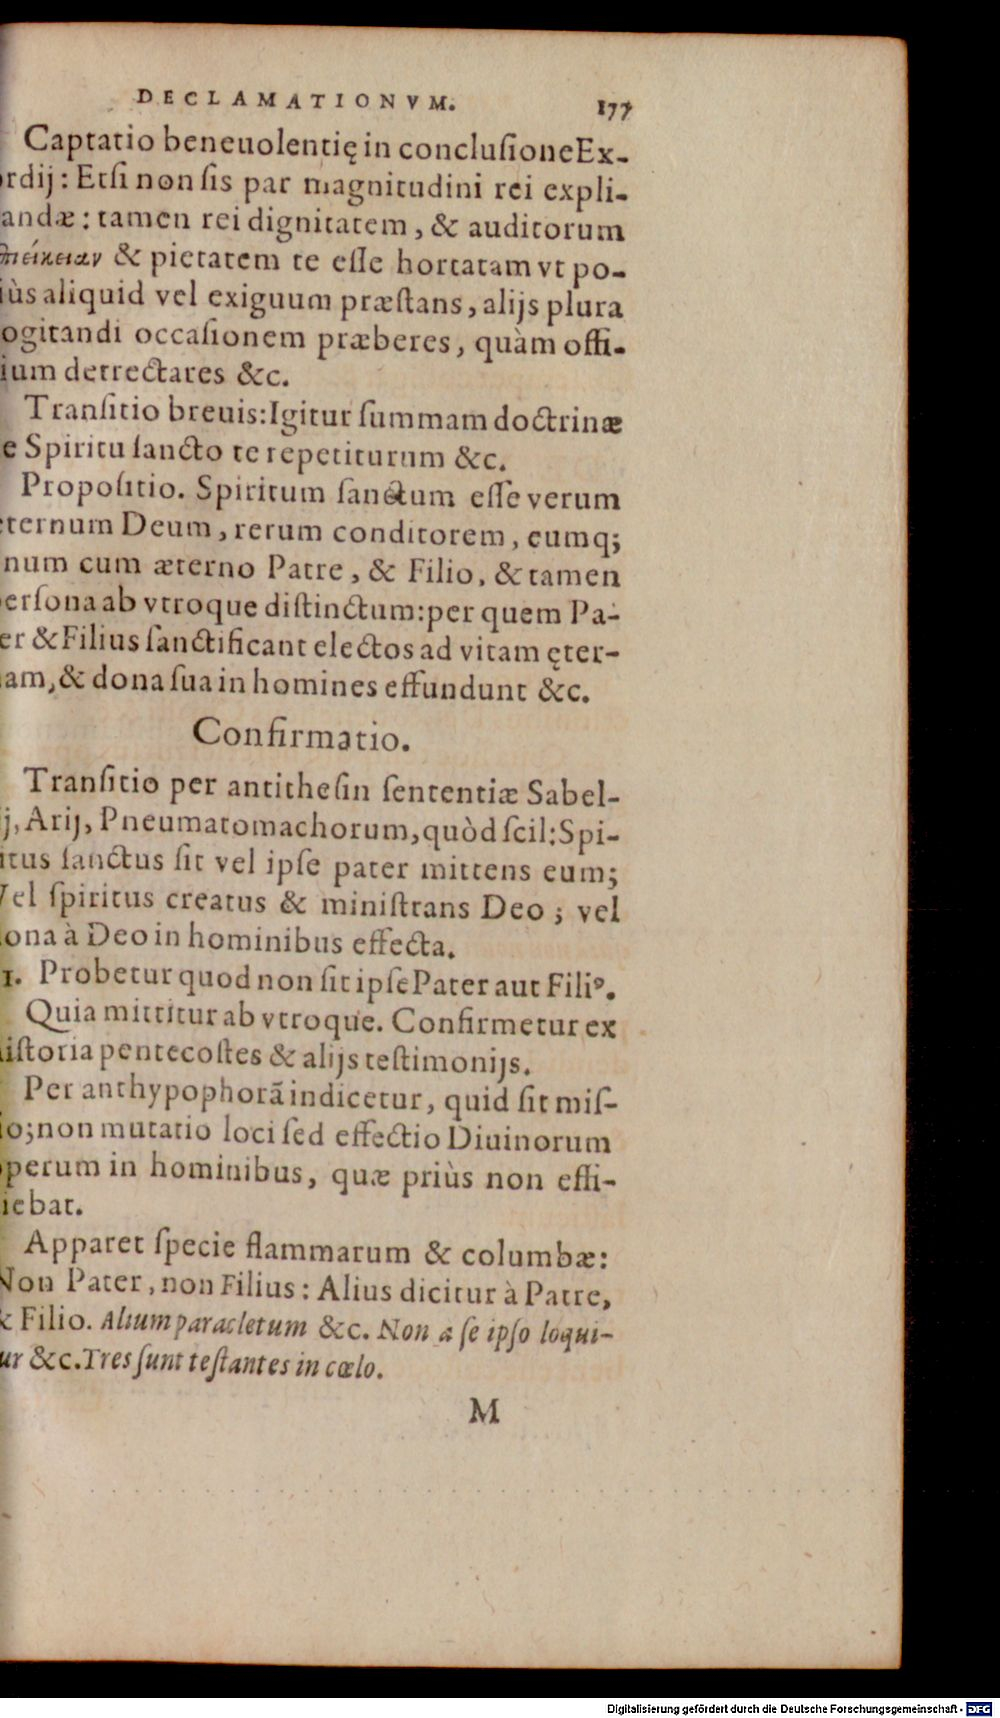 DECLAMATIONVM. 177
Captatio beneuolentię in conclusione Ex-
ordij: Etsi non sis par magnitudini rei expli-
andæ: tamen rei dignitatem, & auditorum
ἐπιείκειαν & pietatem te esse hortatam vt po-
iùs aliquid vel exiguum præstans, alijs plura
ogitandi occasionem præberes, quàm offi-
ium detrectares &c.
Transitio breuis: Igitur summam doctrinæ
e Spiritu sancto te repetiturum &c.
Propositio. Spiritum sanctum esse verum
æternum Deum, rerum conditorem, eumq;
num cum æterno Patre, & Filio, & tamen
persona ab vtroque distinctum: per quem Pa-
er & Filius sanctificant electos ad vitam ęter-
nam, & dona sua in homines effundunt &c.
Confirmatio.
Transitio per antithesin sententiæ Sabel-
ij, Arij, Pneumatomachorum, quòd scil: Spi-
itus sanctus sit vel ipse pater mittens eum;
Vel spiritus creatus & ministrans Deo; vel
dona à Deo in hominibus effecta.
1. Probetur quod non sit ipse Pater aut Fili⁹.
Quia mittitur ab vtroque. Confirmetur ex
historia pentecostes & alijs testimonijs.
Per anthypophorā indicetur, quid sit mis-
io; non mutatio loci sed effectio Diuinorum
operum in hominibus, quæ priùs non effi-
iebat.
Apparet specie flammarum & columbæ:
Non Pater, non Filius: Alius dicitur à Patre,
& Filio. Alium paracletum &c. Non a se ipso loqui-
ur &c. Tres sunt testantes in cœlo.
M
Digitalisierung gefördert durch die Deutsche Forschungsgemeinschaft - DFG